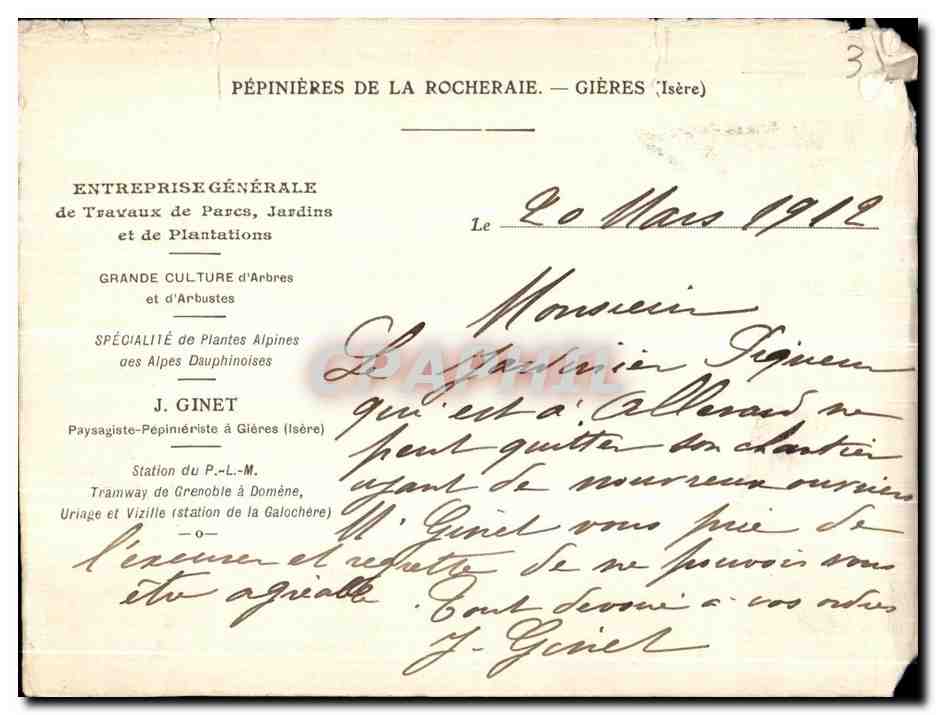 3
PÉPINIÈRES DE LA ROCHERAIE. — GIÈRES (Isère)
ENTREPRISE GÉNÉRALE
de Travaux de Parcs, Jardins
et de Plantations
GRANDE CULTURE d'Arbres
et d'Arbustes
SPÉCIALITÉ de Plantes Alpines
des Alpes Dauphinoises
J. GINET
Paysagiste-Pépiniériste à Gières (Isère)
Station du P.-L.-M.
Tramway de Grenoble à Domène,
Uriage et Vizille (station de la Galochère)
—o—
Le 20 Mars 1912
Monsieur
Le Jardinier Piqueur
qui est à Allevard ne
peut quitter son chantier
ayant de nouveaux ouvriers
Mr Ginet vous prie de
l'excuser et regrette de ne pouvoir vous
être agréable. Tout dévoué à vos ordres
J. Ginet
CPAPHIL